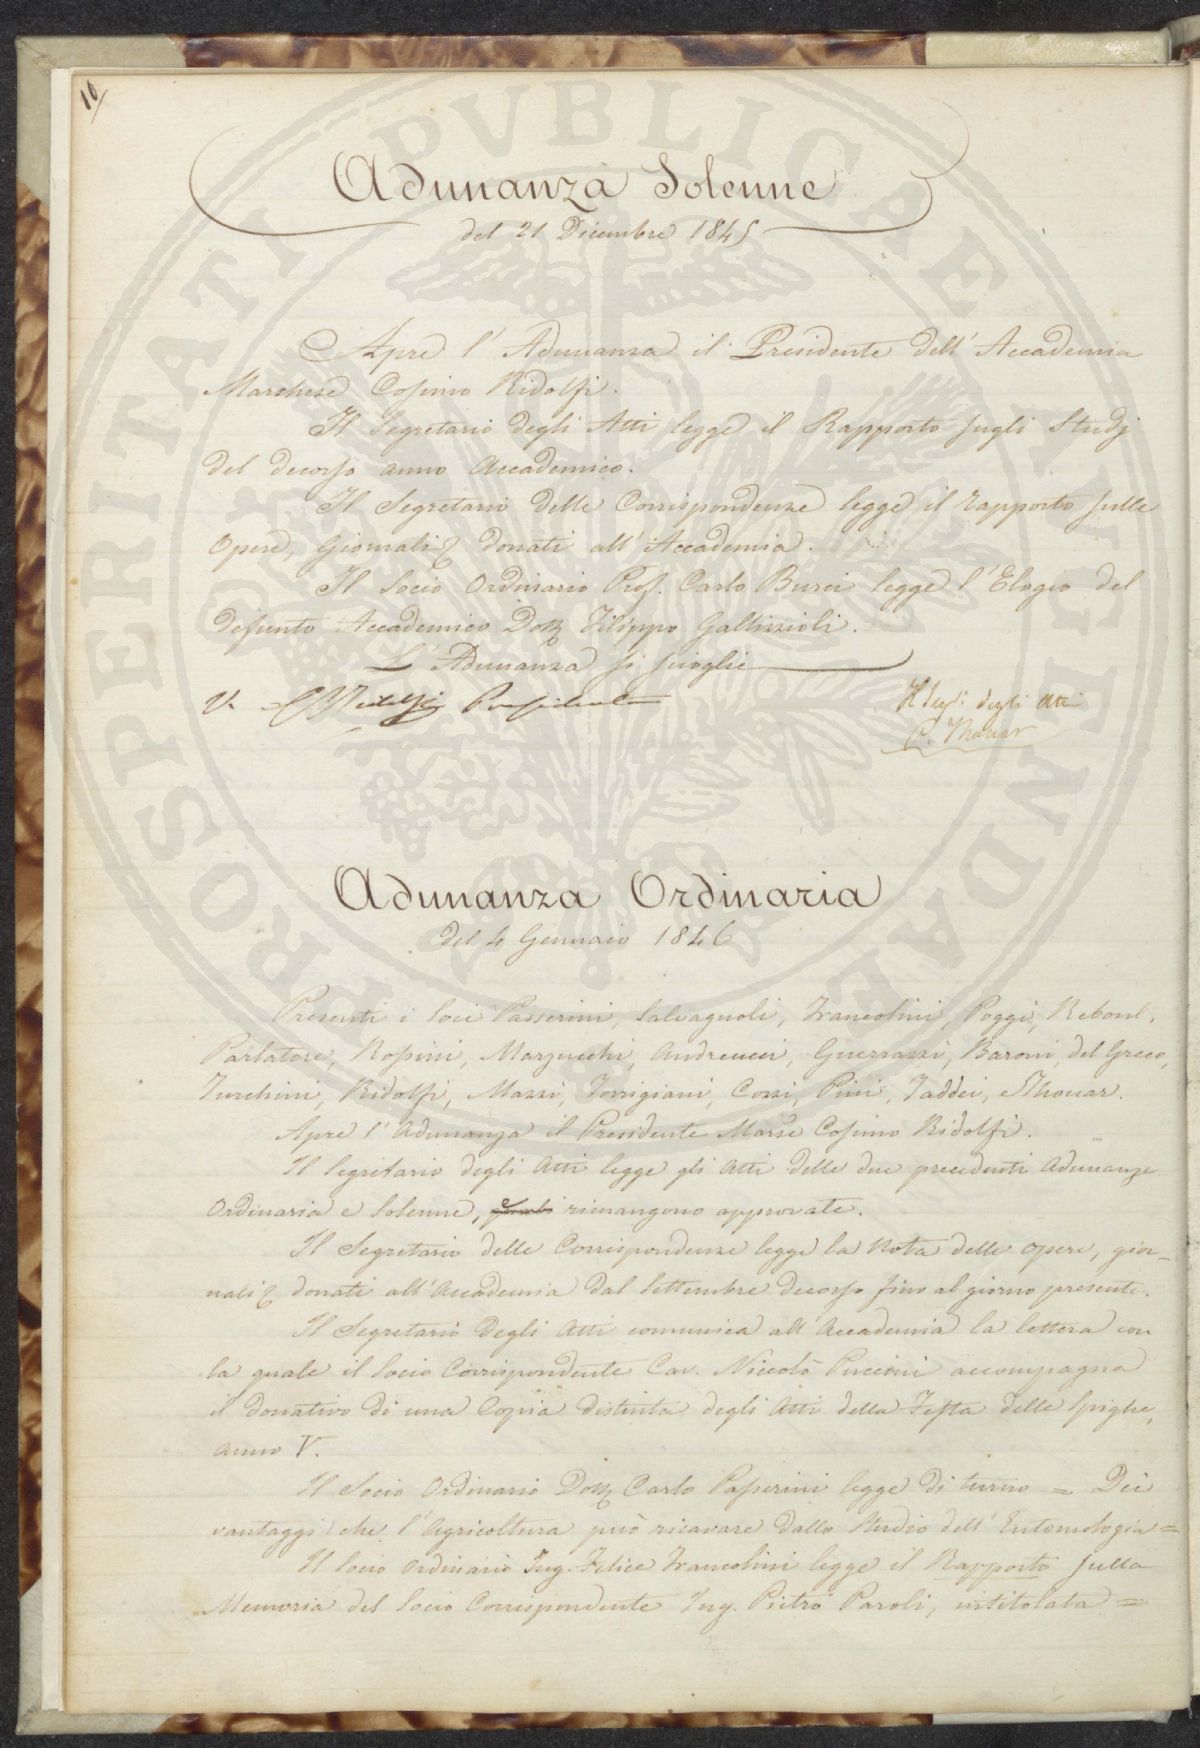 10/
Adunanza Solenne
del 21 Dicembre 1845
Apre l' Adunanza il Presidente dell' Accademia
Marchese Cosimo Ridolfi.
Il Segretario degli Atti legge il Rapporto sugli Studj
del decorso anno Accademico.
Il Segretario delle Corrispondenze legge il rapporto sulle
Opere, Giornali & donati all' Accademia.
Il Socio Ordinario Prof. Carlo Burci legge l' Elogio del
defunto Accademico Dott. Filippo Gallizzioli.
L' Adunanza si scioglie
V. C Ridolfi Presidente
Il Seg. degli Atti
P. Thouar
Adunanza Ordinaria
del 4 Gennaio 1846
Presenti i Soci Passerini, Salvagnoli, Francolini, Poggi, Reboul,
Parlatore, Rossini, Marzucchi, Andreucci, Guerrazzi, Baroni, del Greco,
Turchini, Ridolfi, Mazzi, Torrigiani, Cozzi, Pini, Taddei, e Thouar.
Apre l' Adunanza il Presidente Marse Cosimo Ridolfi.
Il Segretario degli Atti legge gli Atti delle due precedenti Adunanze
Ordinaria e Solenne, rimangono approvate.
Il Segretario delle Corrispondenze legge la Nota delle opere, gior-
nali & donati all' Accademia dal Settembre decorso fino al giorno presente.
Il Segretario degli Atti comunica all' Accademia la lettera con
la quale il Socio Corrispondente Cav. Niccolò Puccini accompagna
il donativo di una Copia distinta degli Atti della Festa delle Spighe,
anno V.
Il Socio Ordinario Dott. Carlo Passerini legge di turno = Dei
vantaggi che l' Agricoltura può ricavare dallo Studio dell' Entomologia =
Il Socio Ordinario Ing. Felice Francolini legge il Rapporto sulla
Memoria del Socio Corrispondente Ing. Pietro Paroli, intitolata =
PROSPERITATI PVBLICAE AVGENDAE